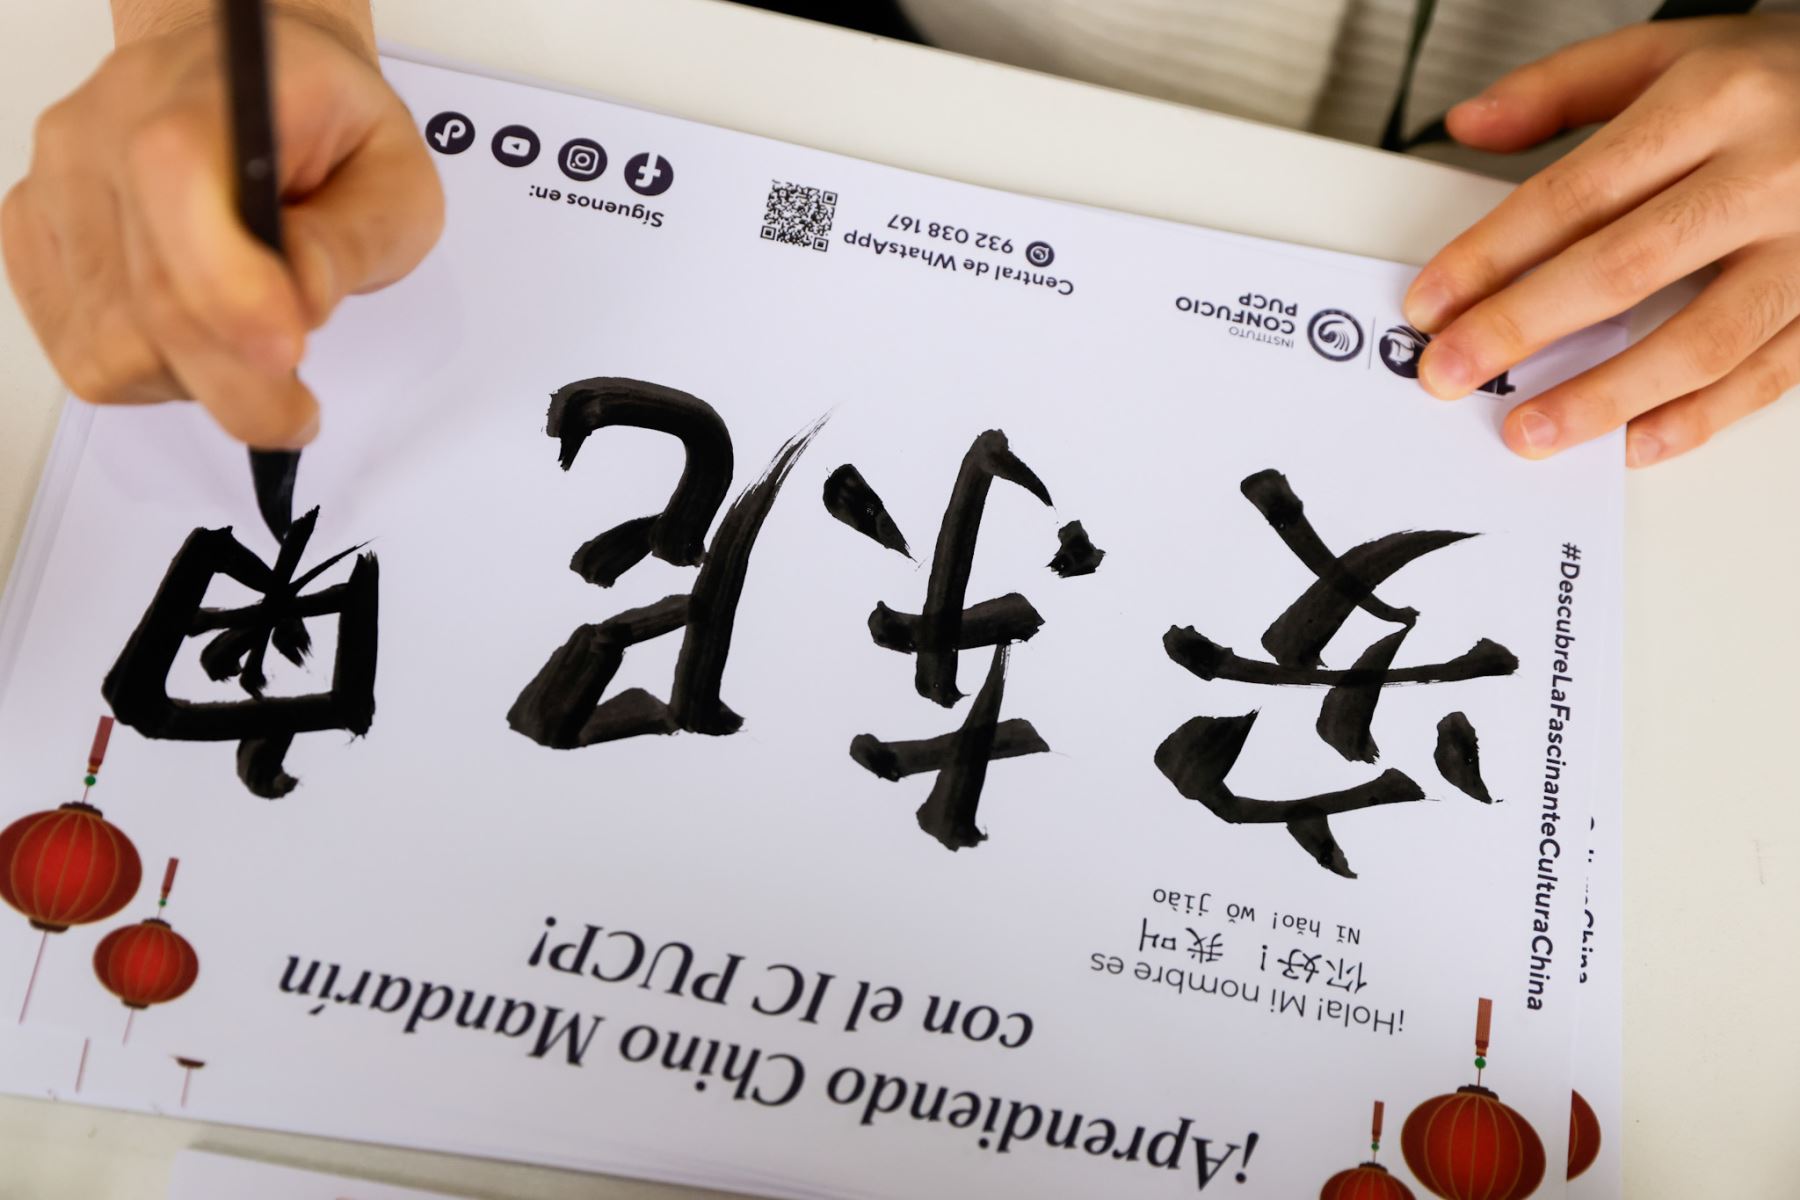 ¡Aprendiendo Chino Mandarín
con el IC PUCP!
¡Hola! Mi nombre es
你好！我叫
Nǐ hǎo! wǒ jiào
安东尼
#DescubreLaFascinanteCulturaChina
INSTITUTO
CONFUCIO
PUCP
Central de WhatsApp
932 038 167
Síguenos en: